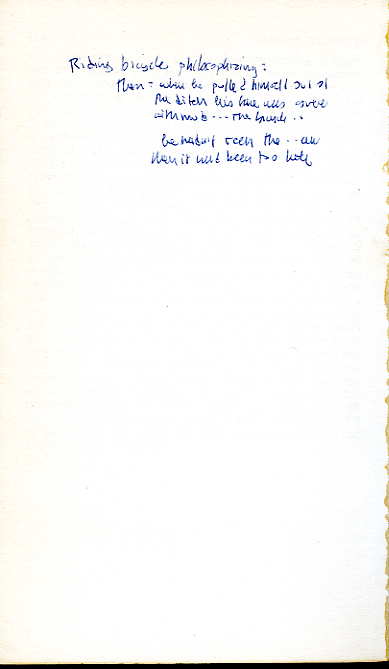 Riding bicycle philosophizing:
then = when he pulled himself out of
the ditch his face was
with mud ... the branch ..
he hadn't seen the ...
then it had been too late